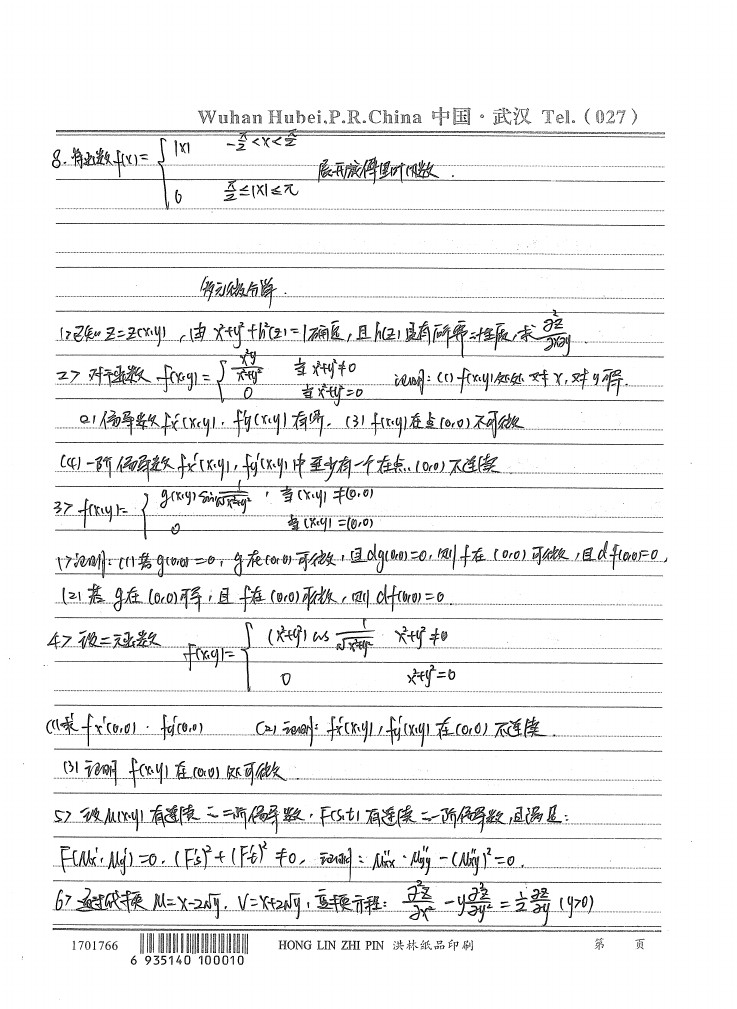 Wuhan Hubei,P.R.China 中国·武汉 Tel.(027)
8. 将函数 f(x) = { |x| -π/2 < x < π/2
0 π/2 ≤ |x| ≤ π
展开成傅里叶级数.
多元微分学.
1> 已知 z=z(x,y), 由 x²+y²+h(z)=1确定, 且h(z)具有所需之性质, 求 ∂²z/∂x∂y.
2> 对于函数 f(x,y) = { x²y/(x²+y²) 当 x²+y²≠0
0 当 x²+y²=0
证明: (1) f(x,y)处处对x, 对y可导.
(2) 偏导数 fx'(x,y), fy'(x,y) 有界. (3) f(x,y)在点(0,0)不可微
(4) 一阶偏导数 fx'(x,y), fy'(x,y) 中至少有一个在点(0,0)不连续
3> f(x,y) = { g(x,y) sin 1/√(x²+y²), 当(x,y)≠(0,0)
0 当(x,y)=(0,0)
1> 证明: (1) 若g(0,0)=0, g在(0,0)可微, 且dg(0,0)=0, 则f在(0,0)可微, 且df(0,0)=0,
(2) 若g在(0,0)可导, 且f在(0,0)可微, 则df(0,0)=0.
4> 设二元函数 f(x,y) = { (x²+y²) cos 1/√(x²+y²) x²+y²≠0
0 x²+y²=0
(1) 求 fx'(0,0). fy'(0,0) (2) 证明: fx'(x,y), fy'(x,y) 在(0,0)不连续.
(3) 证明 f(x,y) 在(0,0)处可微.
5> 设u(x,y)有连续之二阶偏导数, F(s,t)有连续之一阶偏导数, 且满足:
F(ux', uy')=0, (Fs')²+(Ft')²≠0, 证明: uxx''·uyy''-(uxy'')²=0.
6> 通过代换 u=x-2√y, v=x+2√y, 变换方程: ∂²z/∂x² - y ∂²z/∂y² = 1/2 ∂z/∂y (y>0)
1701766 HONG LIN ZHI PIN 洪林纸品印刷 第 页
6 935140 100010